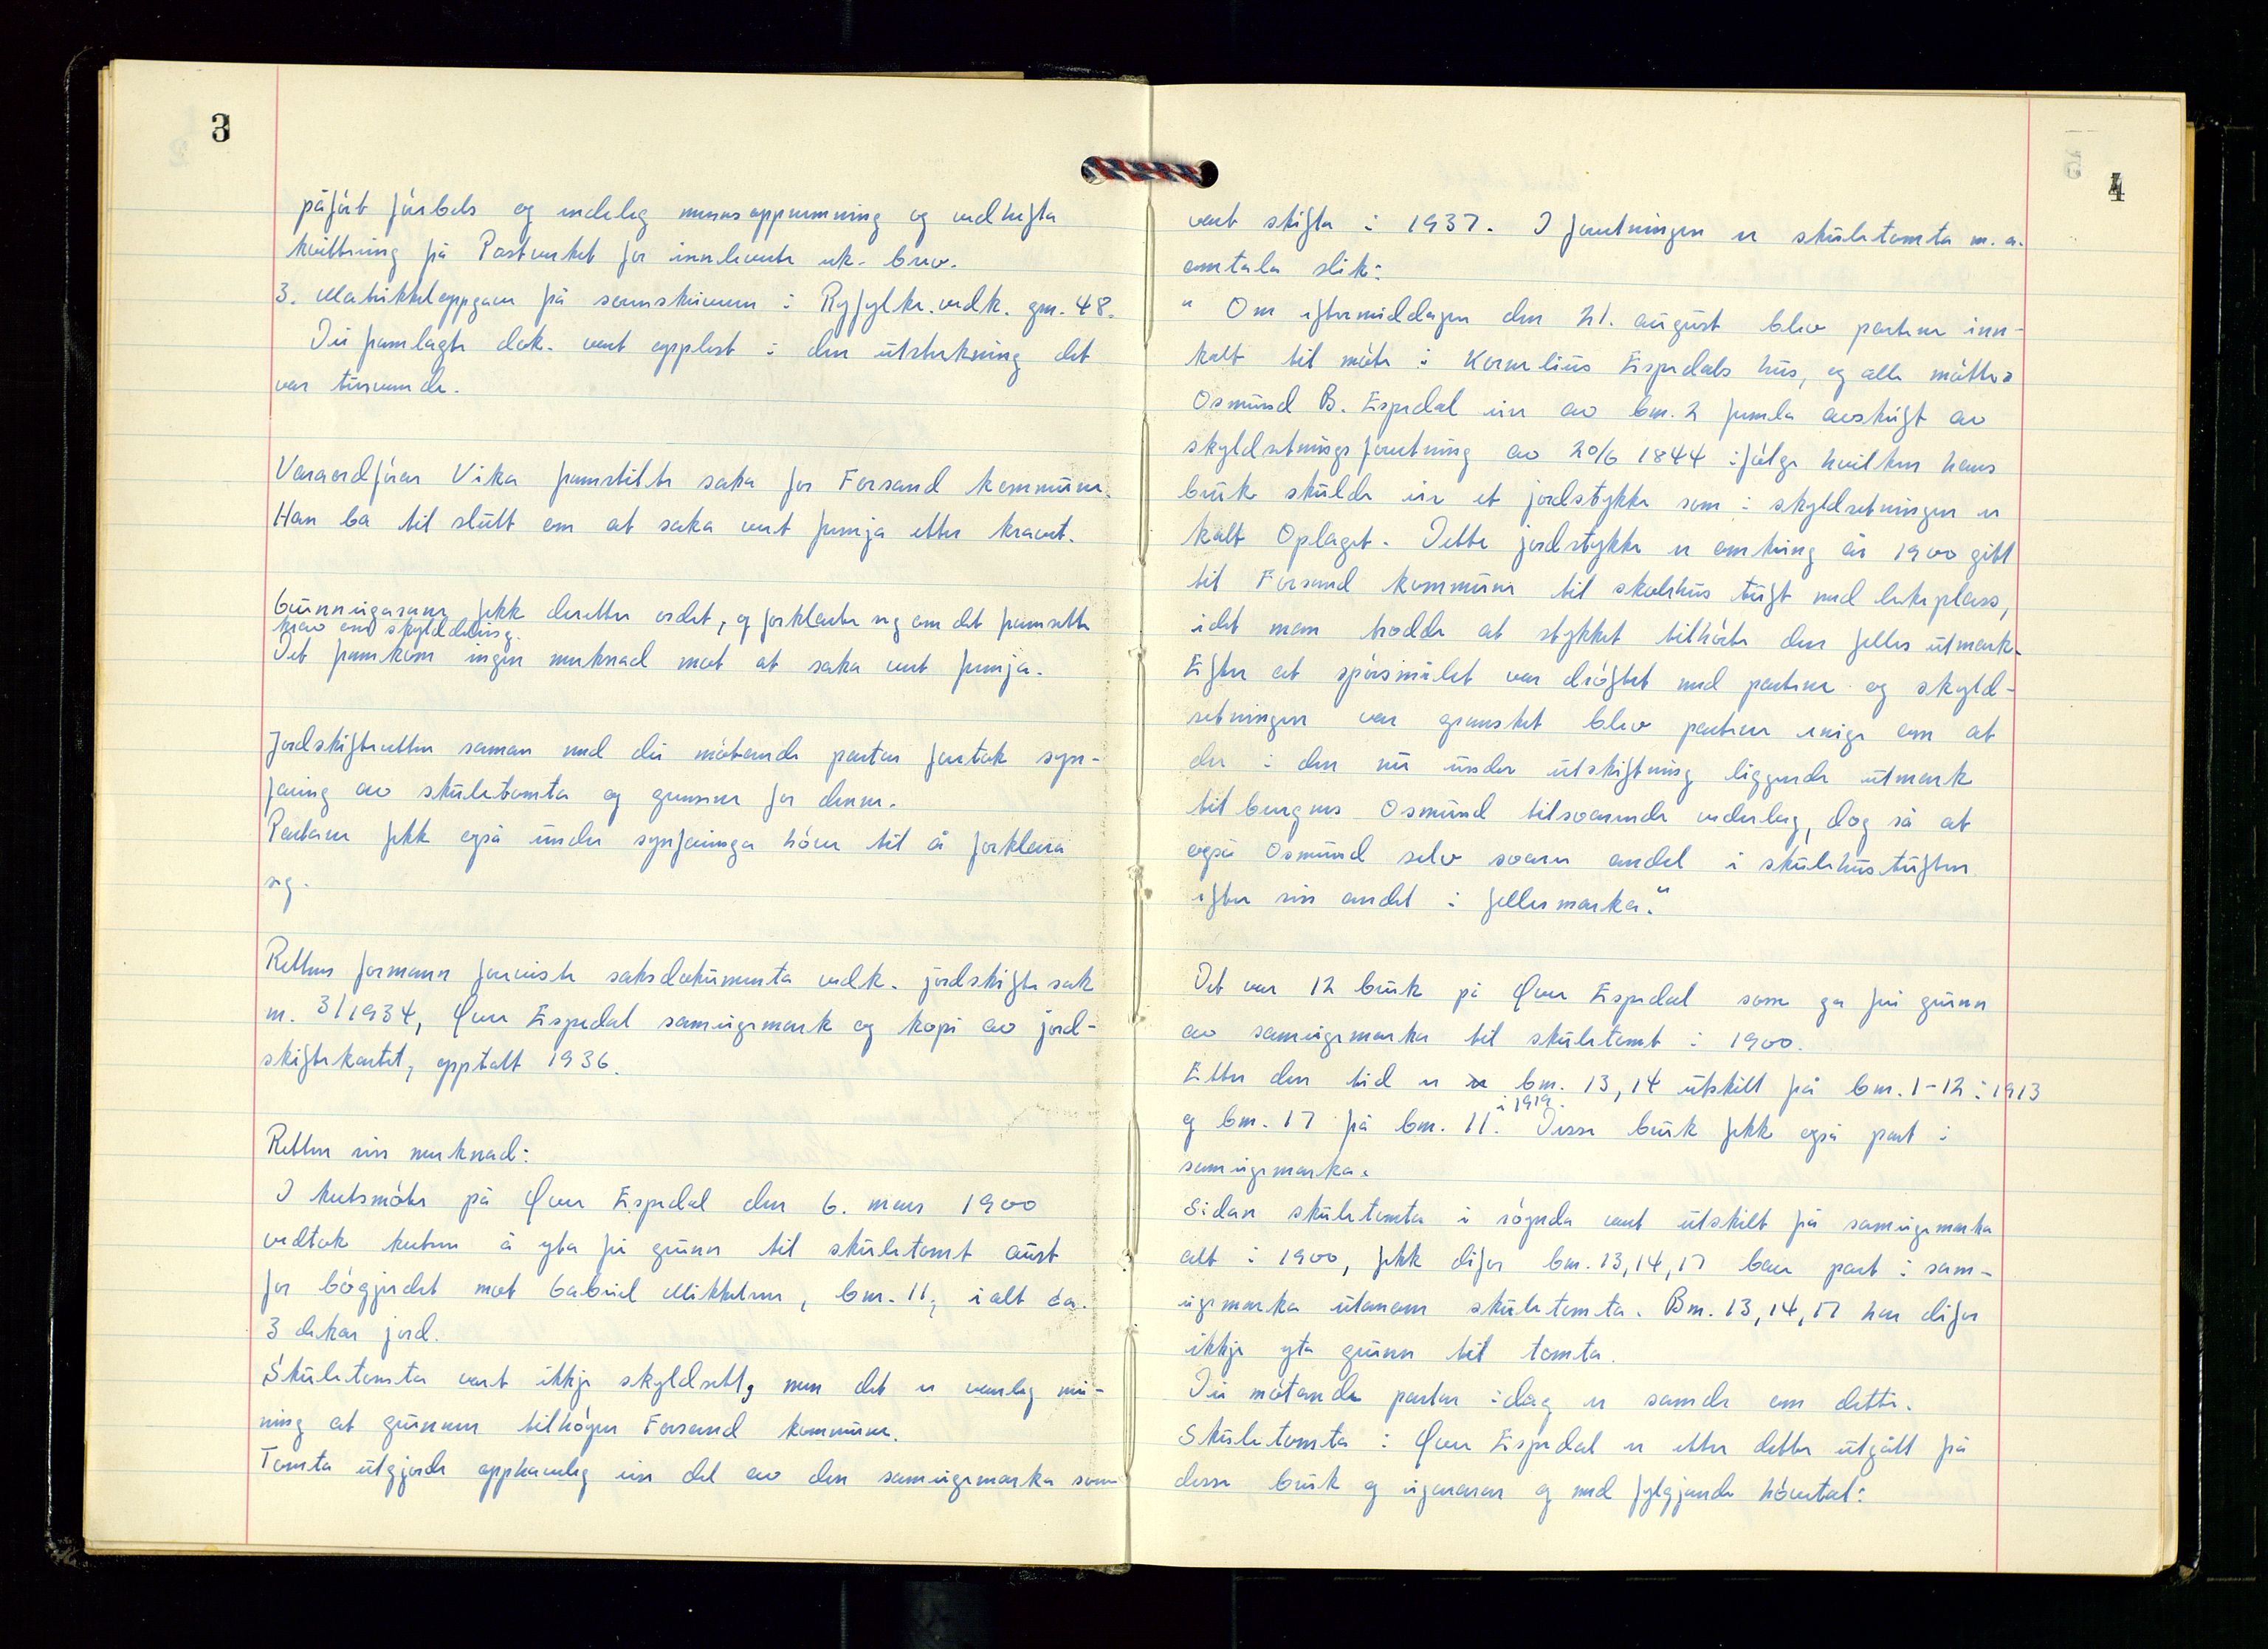 3
påført førbels og endeleg minneoppnemning og vedhefta
kvittring frå Postverket for innleverte rek. brev.
3. Matrikkeloppgave frå sorenskrivaren i Ryfylke. vedk. gnr. 48.
Dei framlagte dok. vart opplest i den utstrekning det
var turvande.
Varaordførar Vika framstilte saka for Forsand kommune.
Han ba til slutt om at saka vart fremja etter kravet.
Grunneigarane fekk deretter ordet, og forklarte seg om det framsette
krav om skylddeling.
Det framkom ingen merknad mot at saka vart fremja.
Jordskifteretten saman med dei møtande partar foretok syn-
faring av skuletomta og grensene for denne.
Partane fekk også under synfaringa høve til å forklara
seg.
Rettens formann foreviste saksdokumenta vedk. jordskifte sak
nr. 3/1934, Øvre Espedal sameigemark og kopi av jord-
skiftekartet, opptatt 1936.
Retten sin merknad:
I kretsmøte på Øvre Espedal den 6. mars 1900
vedtok kretsen å yta fri grunn til skuletomt aust
for bøgjerdet mot Gabriel Mikkelsen, bnr. 11, i alt ca.
3 dekar jord.
Skuletomta vart ikkje skyldsett, men det er vanleg mei-
ning at grunnen tilhøyrer Forsand kommune.
Tomta utgjorde opphaveleg ein del av den sameigemarka som
4
vart skifta i 1937. I forretningen er skuletomta m.a.
omtala slik:
" Om eftermiddagen den 21. august blev partene inn-
kalt til møte i Kornelius Espedals hus, og alle møtte.
Osmund B. Espedal eier av bnr. 2 fremla avskrift av
skyldsetningsforretning av 20/6 1844 ifølge hvilken hans
bruk skulde eie et jordstykke som i skyldsetningen er
kalt Oplaget. Dette jordstykke er omkring år 1900 gitt
til Forsand kommune til skolehus tuft med lekeplass,
idet man trodde at stykket tilhørte den felles utmark.
Efter at spørsmålet var drøftet med partene og skyld-
setningen var gransket blev partene enige om at
der i den nu under utskiftning liggende utmark
tilberegnes Osmund tilsvarende vederlag, dog så at
også Osmund selv svarer andel i skulehustuften
efter sin andel i fellesmarka."
Det var 12 bruk på Øvre Espedal som ga fri grunn
av sameigemarka til skuletomt i 1900.
Etter den tid er bnr. 13, 14 utskilt frå bnr. 1-12 i 1913
og bnr. 17 frå bnr. 11. i 1919. Disse bruk fekk også part i
sameigemarka.
Sidan skuletomta i røynda vart utskilt frå sameigemarka
alt i 1900, fekk difor bnr. 13, 14, 17 bare part i sam-
eigemarka utanom skuletomta. Bnr. 13, 14, 17 har difor
ikkje yta grunn til tomta.
Dei møtande partar idag er samde om dette.
Skuletomta i Øvre Espedal er etter dette utgått frå
desse bruk og eigararar og med fylgjande høvetal: